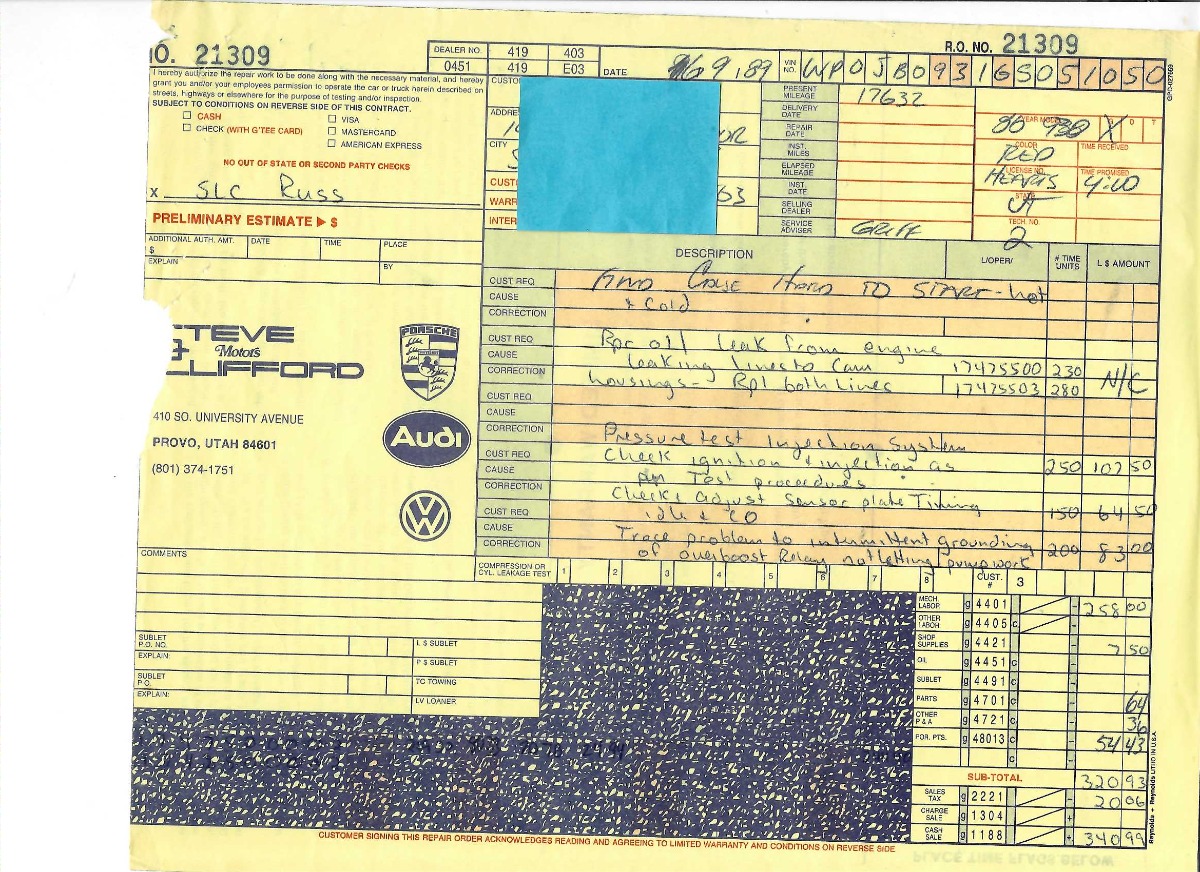 NO. 21309
DEALER NO. 419 403
0451 419 E03
DATE 9,89
VIN NO. WP0JB0931GS051050
R.O. NO. 21309
I hereby authorize the repair work to be done along with the necessary material, and hereby
grant you and/or your employees permission to operate the car or truck herein described on
streets, highways or elsewhere for the purpose of testing and/or inspection.
SUBJECT TO CONDITIONS ON REVERSE SIDE OF THIS CONTRACT.
CASH
VISA
CHECK (WITH G'TEE CARD)
MASTERCARD
AMERICAN EXPRESS
NO OUT OF STATE OR SECOND PARTY CHECKS
X SLC Russ
PRELIMINARY ESTIMATE ▶ $
ADDITIONAL AUTH. AMT. DATE TIME PLACE
$
EXPLAIN BY
CITY
DR
63
PRESENT MILEAGE 17632
DELIVERY DATE
REPAIR DATE
INST. MILES
ELAPSED MILEAGE
INST. DATE
SELLING DEALER
SERVICE ADVISER GRIFF
86 930 X
COLOR RED
TIME RECEIVED
LICENSE NO. HEARTS
TIME PROMISED 4:00
STATE UT
TECH. NO. 2
DESCRIPTION L/OPER/ # TIME UNITS L $ AMOUNT
CUST REQ Find Cause Hard TO START - hot
CAUSE & Cold
CORRECTION
CUST REQ Rpr oil leak from engine
CAUSE leaking lines to Cam 17475500 230 N/C
CORRECTION housings - Rpl both Lines 17475503 280
CUST REQ
CAUSE
CORRECTION Pressure test Injection System
CUST REQ Check ignition & injection as 250 107 50
CAUSE per Test procedures
CORRECTION Check & Adjust Sensor plate Timing
CUST REQ idle & CO 150 64 50
CAUSE Trace problem to intermittent grounding
CORRECTION of overboost Relay not letting pump work 200 83 00
STEVE
& Motors
CLIFFORD
PORSCHE
410 SO. UNIVERSITY AVENUE
PROVO, UTAH 84601
(801) 374-1751
Audi
COMMENTS
COMPRESSION OR CYL. LEAKAGE TEST 1 2 3 4 5 6 7 8
CUST. # 3
SUBLET P.O. NO. L $ SUBLET
EXPLAIN: P $ SUBLET
SUBLET P.O. TC TOWING
EXPLAIN: LV LOANER
MECH. LABOR g 4401 258 00
OTHER LABOR g 4405 c
SHOP SUPPLIES g 4421 7 50
OIL g 4451 c
SUBLET g 4491 c
PARTS g 4701 c 64
OTHER P & A g 4721 c 36
FOR. PTS. g 48013 c 54 43
SUB-TOTAL 320 93
SALES TAX g 2221 20 06
CHARGE SALE g 1304
CASH SALE g 1188 340 99
CUSTOMER SIGNING THIS REPAIR ORDER ACKNOWLEDGES READING AND AGREEING TO LIMITED WARRANTY AND CONDITIONS ON REVERSE SIDE
Reynolds + Reynolds LITHO IN U.S.A.